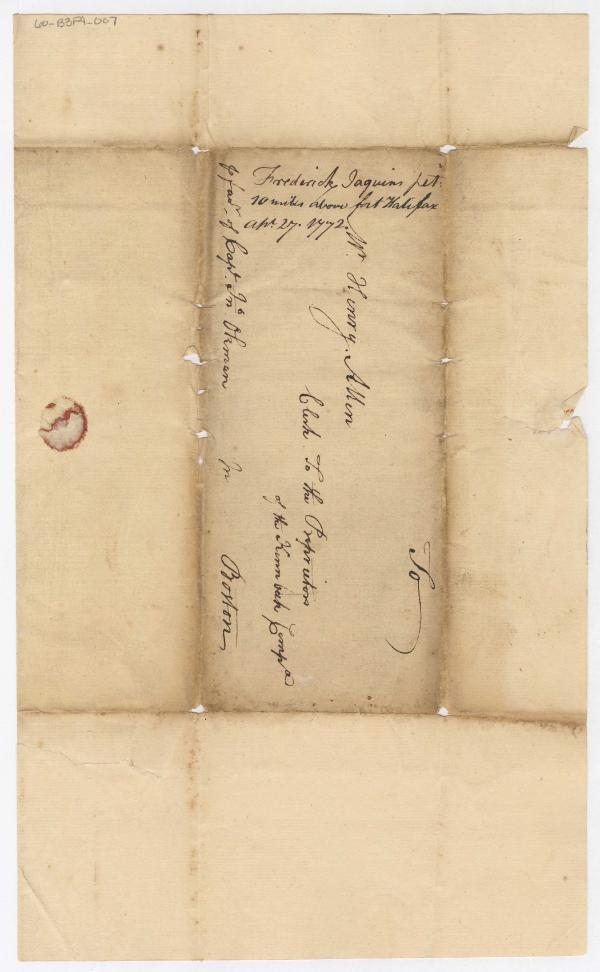 60-B3F4-007
Frederick Jaquins pet:
10 miles above fort Halifax
apr. 27. 1772.
To
Mr. Henry Allen
Clerk To the Proprietors
of the Kennebeck Compa
of Capt. Jno. Ohman in Boston